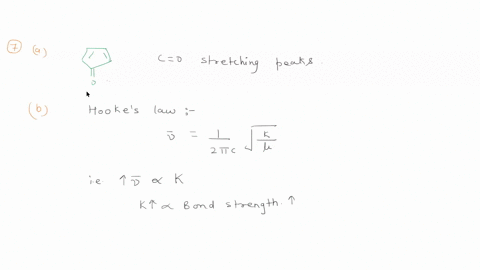 7 (a) C=O stretching peaks.
O
(b) Hooke's law :-
ν̄ = 1/2πc √K/μ
ie ↑ ν̄ ∝ K
K↑ ∝ Bond strength. ↑